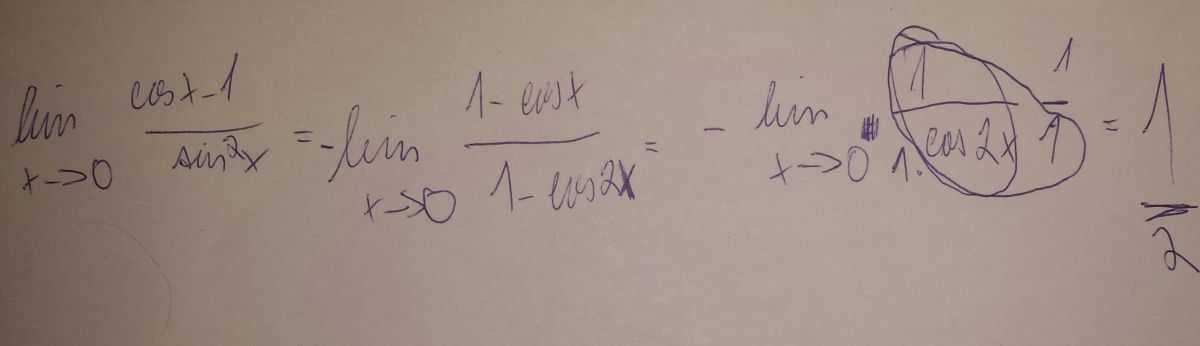 lim x→0 cosx-1 / sin²x = -lim x→0 1-cosx / 1-cos2x = - lim x→0 1 / 1·cos2x 1 / 1 = 1 / 2